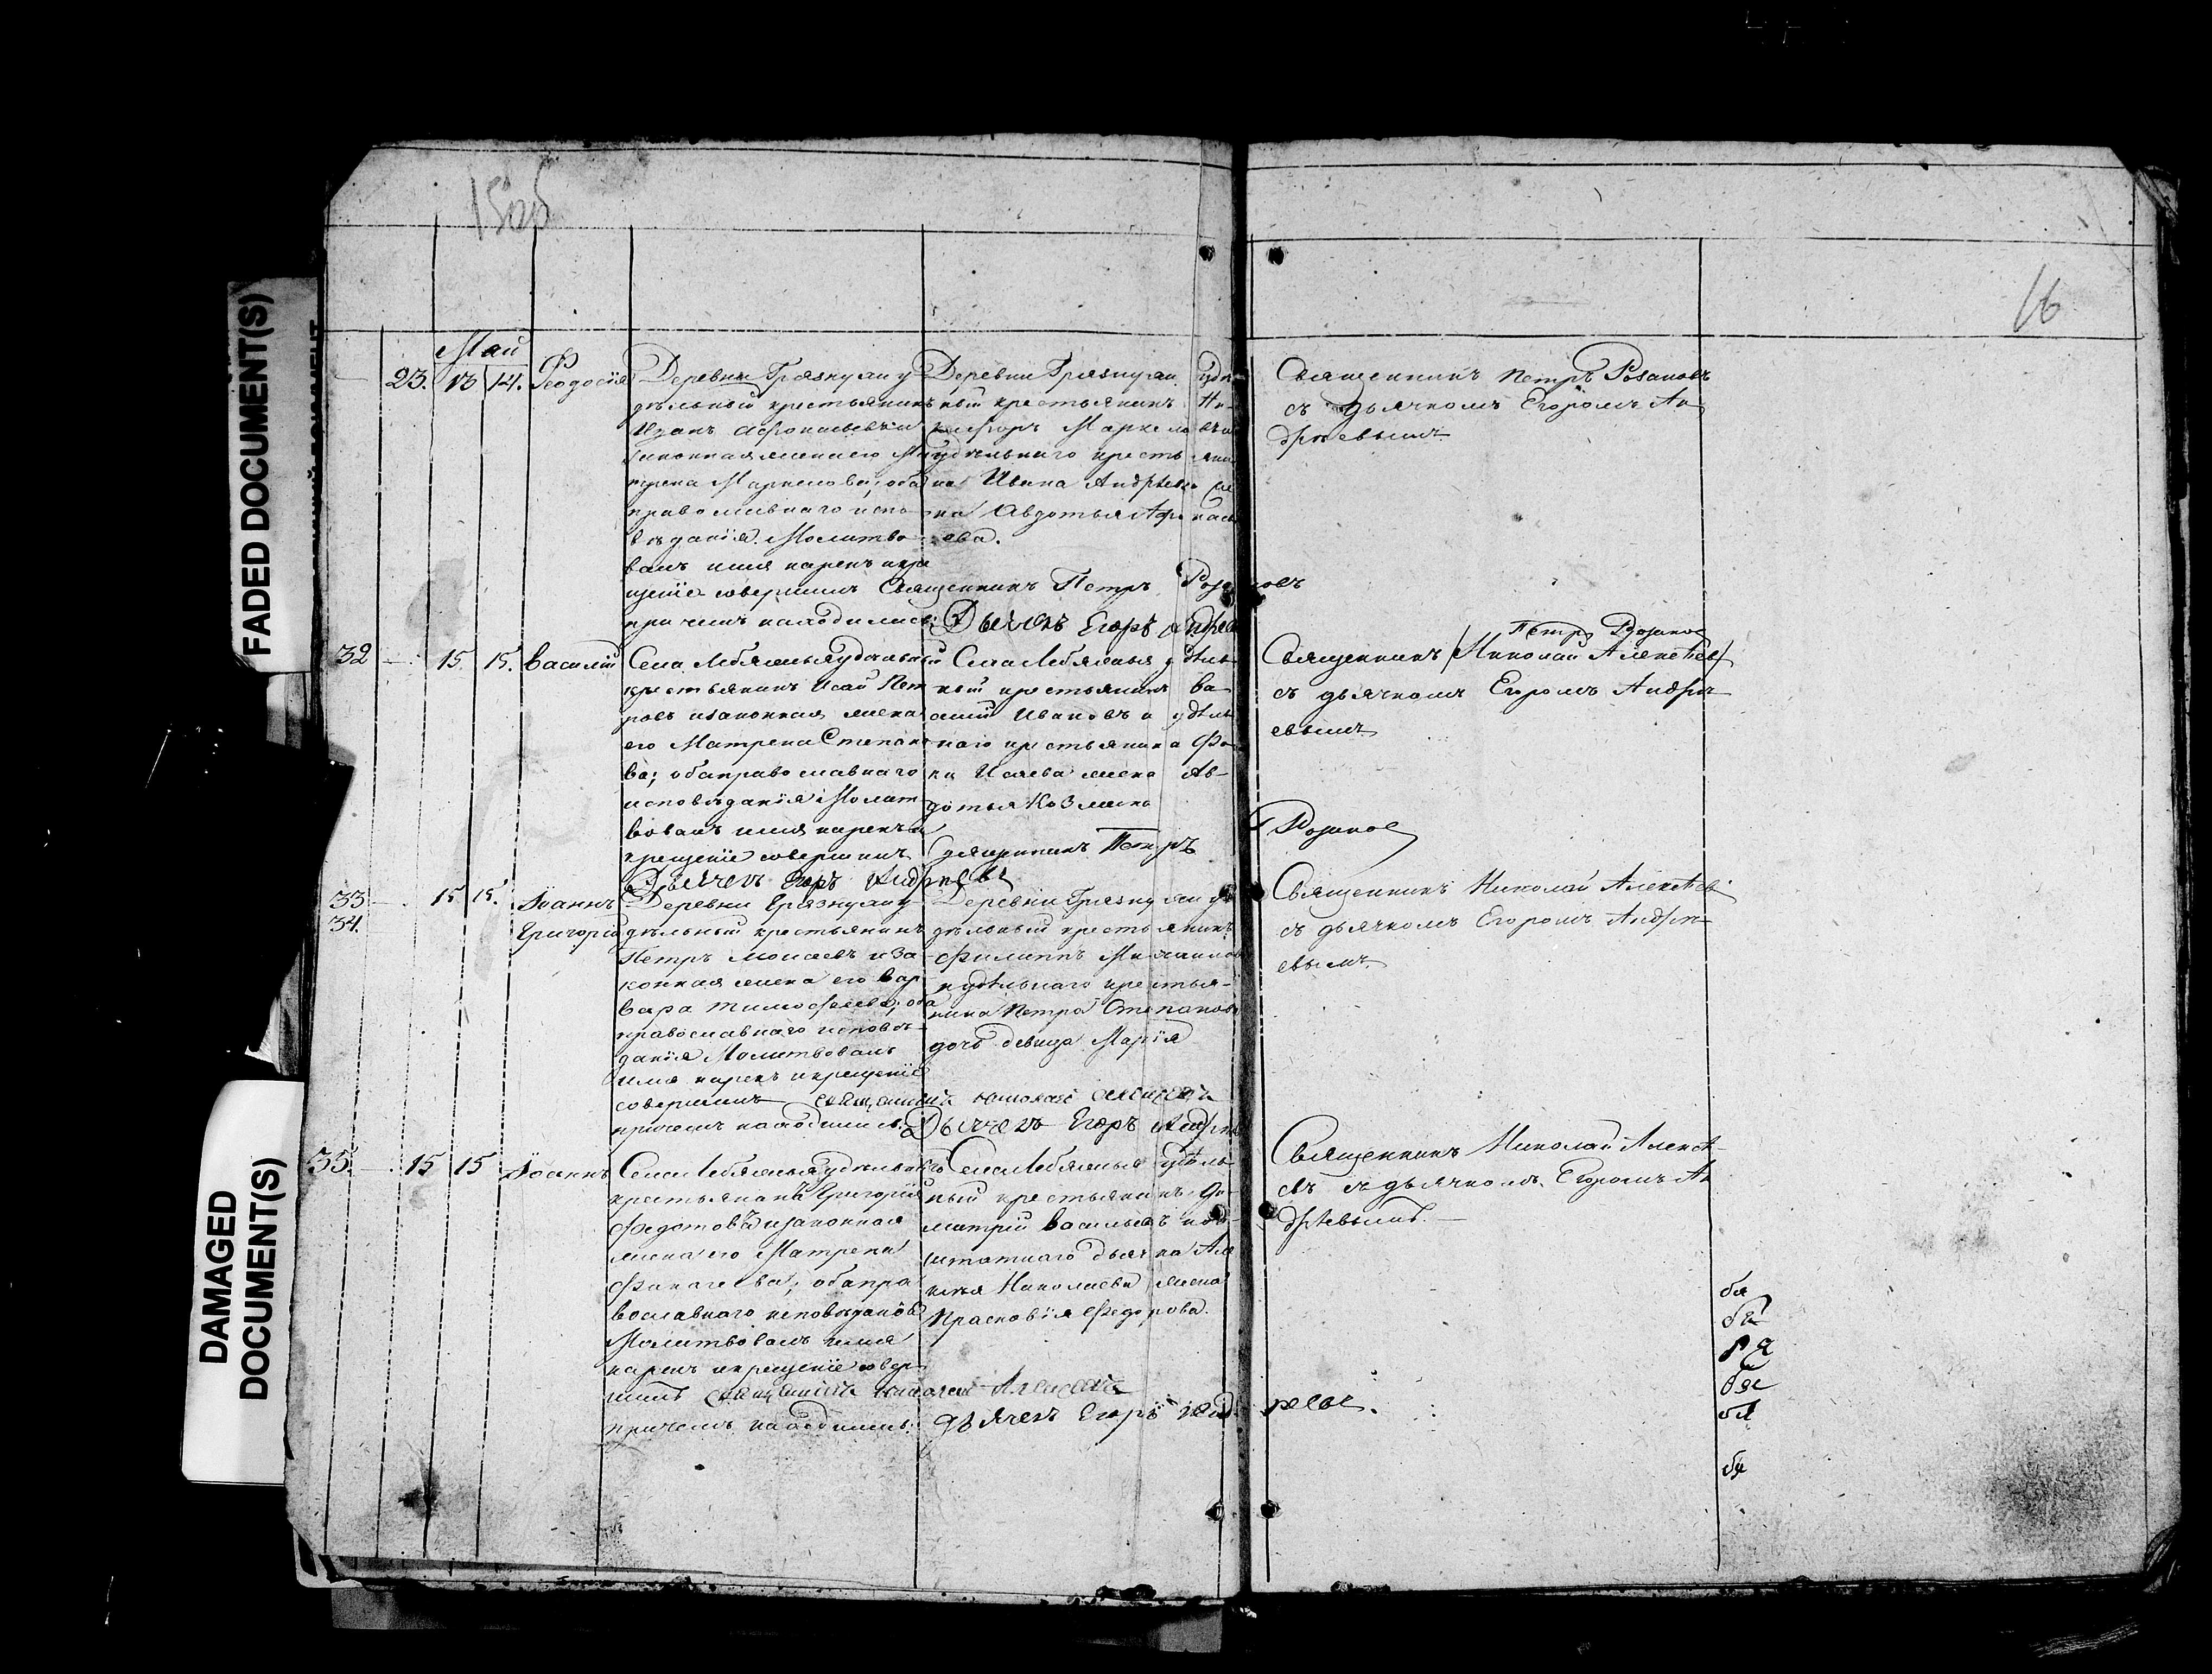 FADED DOCUMENT(S)
DAMAGED
DOCUMENT(S)
16
Май
23. 13 14. Феодосія
Деревни Грязнухи у
дѣльный крестьянинъ
законная жена его
Маркелова; оба
православнаго испо-
вѣданія. Молитво-
валъ имя нарекъ и кре
щеніе совершилъ Священникъ Петръ Розановъ
при чемъ находились: Дьячекъ Егоръ Андреевъ
Деревни Грязнухи удѣль
ный крестьянинъ Ни-
кифоръ Маркеловъ и
удѣльнаго крестьяни
на Ивана Андрѣева же
на Авдотья Афонась
ева.
Священникъ Петръ Розановъ
съ дьячкомъ Егоромъ Ан
дрѣевымъ
32 — 15. 15. Василій
Села Лебяжья удѣльный
крестьянинъ Исай Пет
ровъ и законная жена
его Матрена Степано
ва; оба православнаго
исповѣданія Молит
вовалъ имя нарекъ и
крещеніе совершилъ Священникъ Петръ Розановъ
Дьячекъ Егоръ Андреевъ
Села Лебяжья удѣль
ный крестьянинъ Ва-
силій Ивановъ и удѣль
наго крестьянина Фо-
ки Исаева жена Ав-
дотья Козмина
Петръ Розановъ
Священникъ /Николай Алексѣев/
съ дьячкомъ Егоромъ Андрѣ
евымъ
33 — 15 15. Іоаннъ
34. Григорій
Деревни Грязнухи у
дѣльный крестьянинъ
Петръ Моисѣевъ и за-
конная жена его Вар
вара Тимофеева; оба
православнаго исповѣ-
данія Молитвовалъ
имя нарекъ и крещеніе
совершилъ священникъ Николай Алексеевъ
причемъ находились: Дьячекъ Егоръ Андреевъ
Деревни Грязнухи у
дѣльный крестьянинъ
Филиппъ
и удѣльнаго крестья-
нина Петра Степанова
дочь девица Марія
Священникъ Николай Алексѣевъ
съ дьячкомъ Егоромъ Андрѣ-
евымъ.
35. — 15 15 Іоаннъ
Села Лебяжья удѣльный
крестьянинъ Григорій
Федотовъ и законная
жена его Матрена
оба пра
вославнаго исповѣданія
Молитвовалъ имя
нарекъ и крещеніе совер
шилъ священникъ Николай Алексеевъ
причемъ находились: дьячекъ Егоръ Андреевъ.
Села Лебяжья удѣль-
ный крестьянинъ Ди-
митрій Васильевъ и
штатнаго дьячка Але
ксѣя Николаева жена
Прасковія Федорова.
Священникъ Николай Алексѣ-
евъ съ дьячкомъ Егоромъ Ан
дрѣевымъ. —